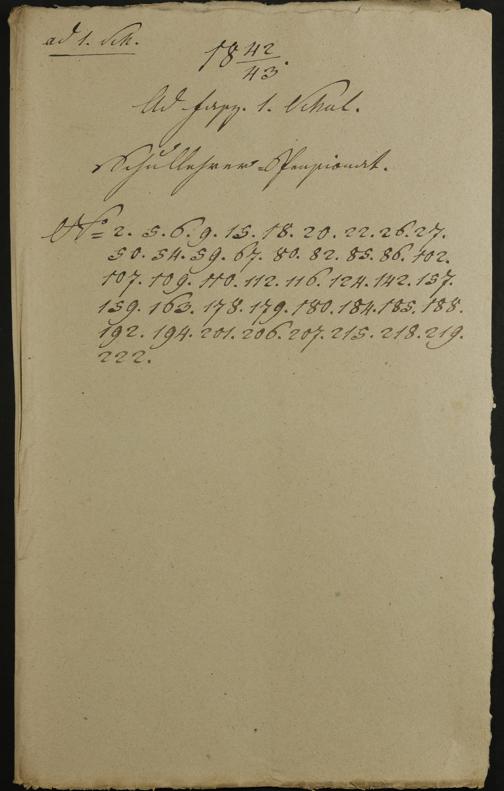 ad 1. Sch.
18 42/43.
Ad fasz. 1. Schul.
Schullehrer-Pensionat.
No 2. 5. 6. 9. 15. 18. 20. 22. 26. 27.
50. 54. 59. 67. 80. 82. 85. 86. 102.
107. 109. 110. 112. 116. 124. 142. 157.
159. 163. 178. 179. 180. 184. 185. 188.
192. 194. 201. 206. 207. 215. 218. 219.
222.